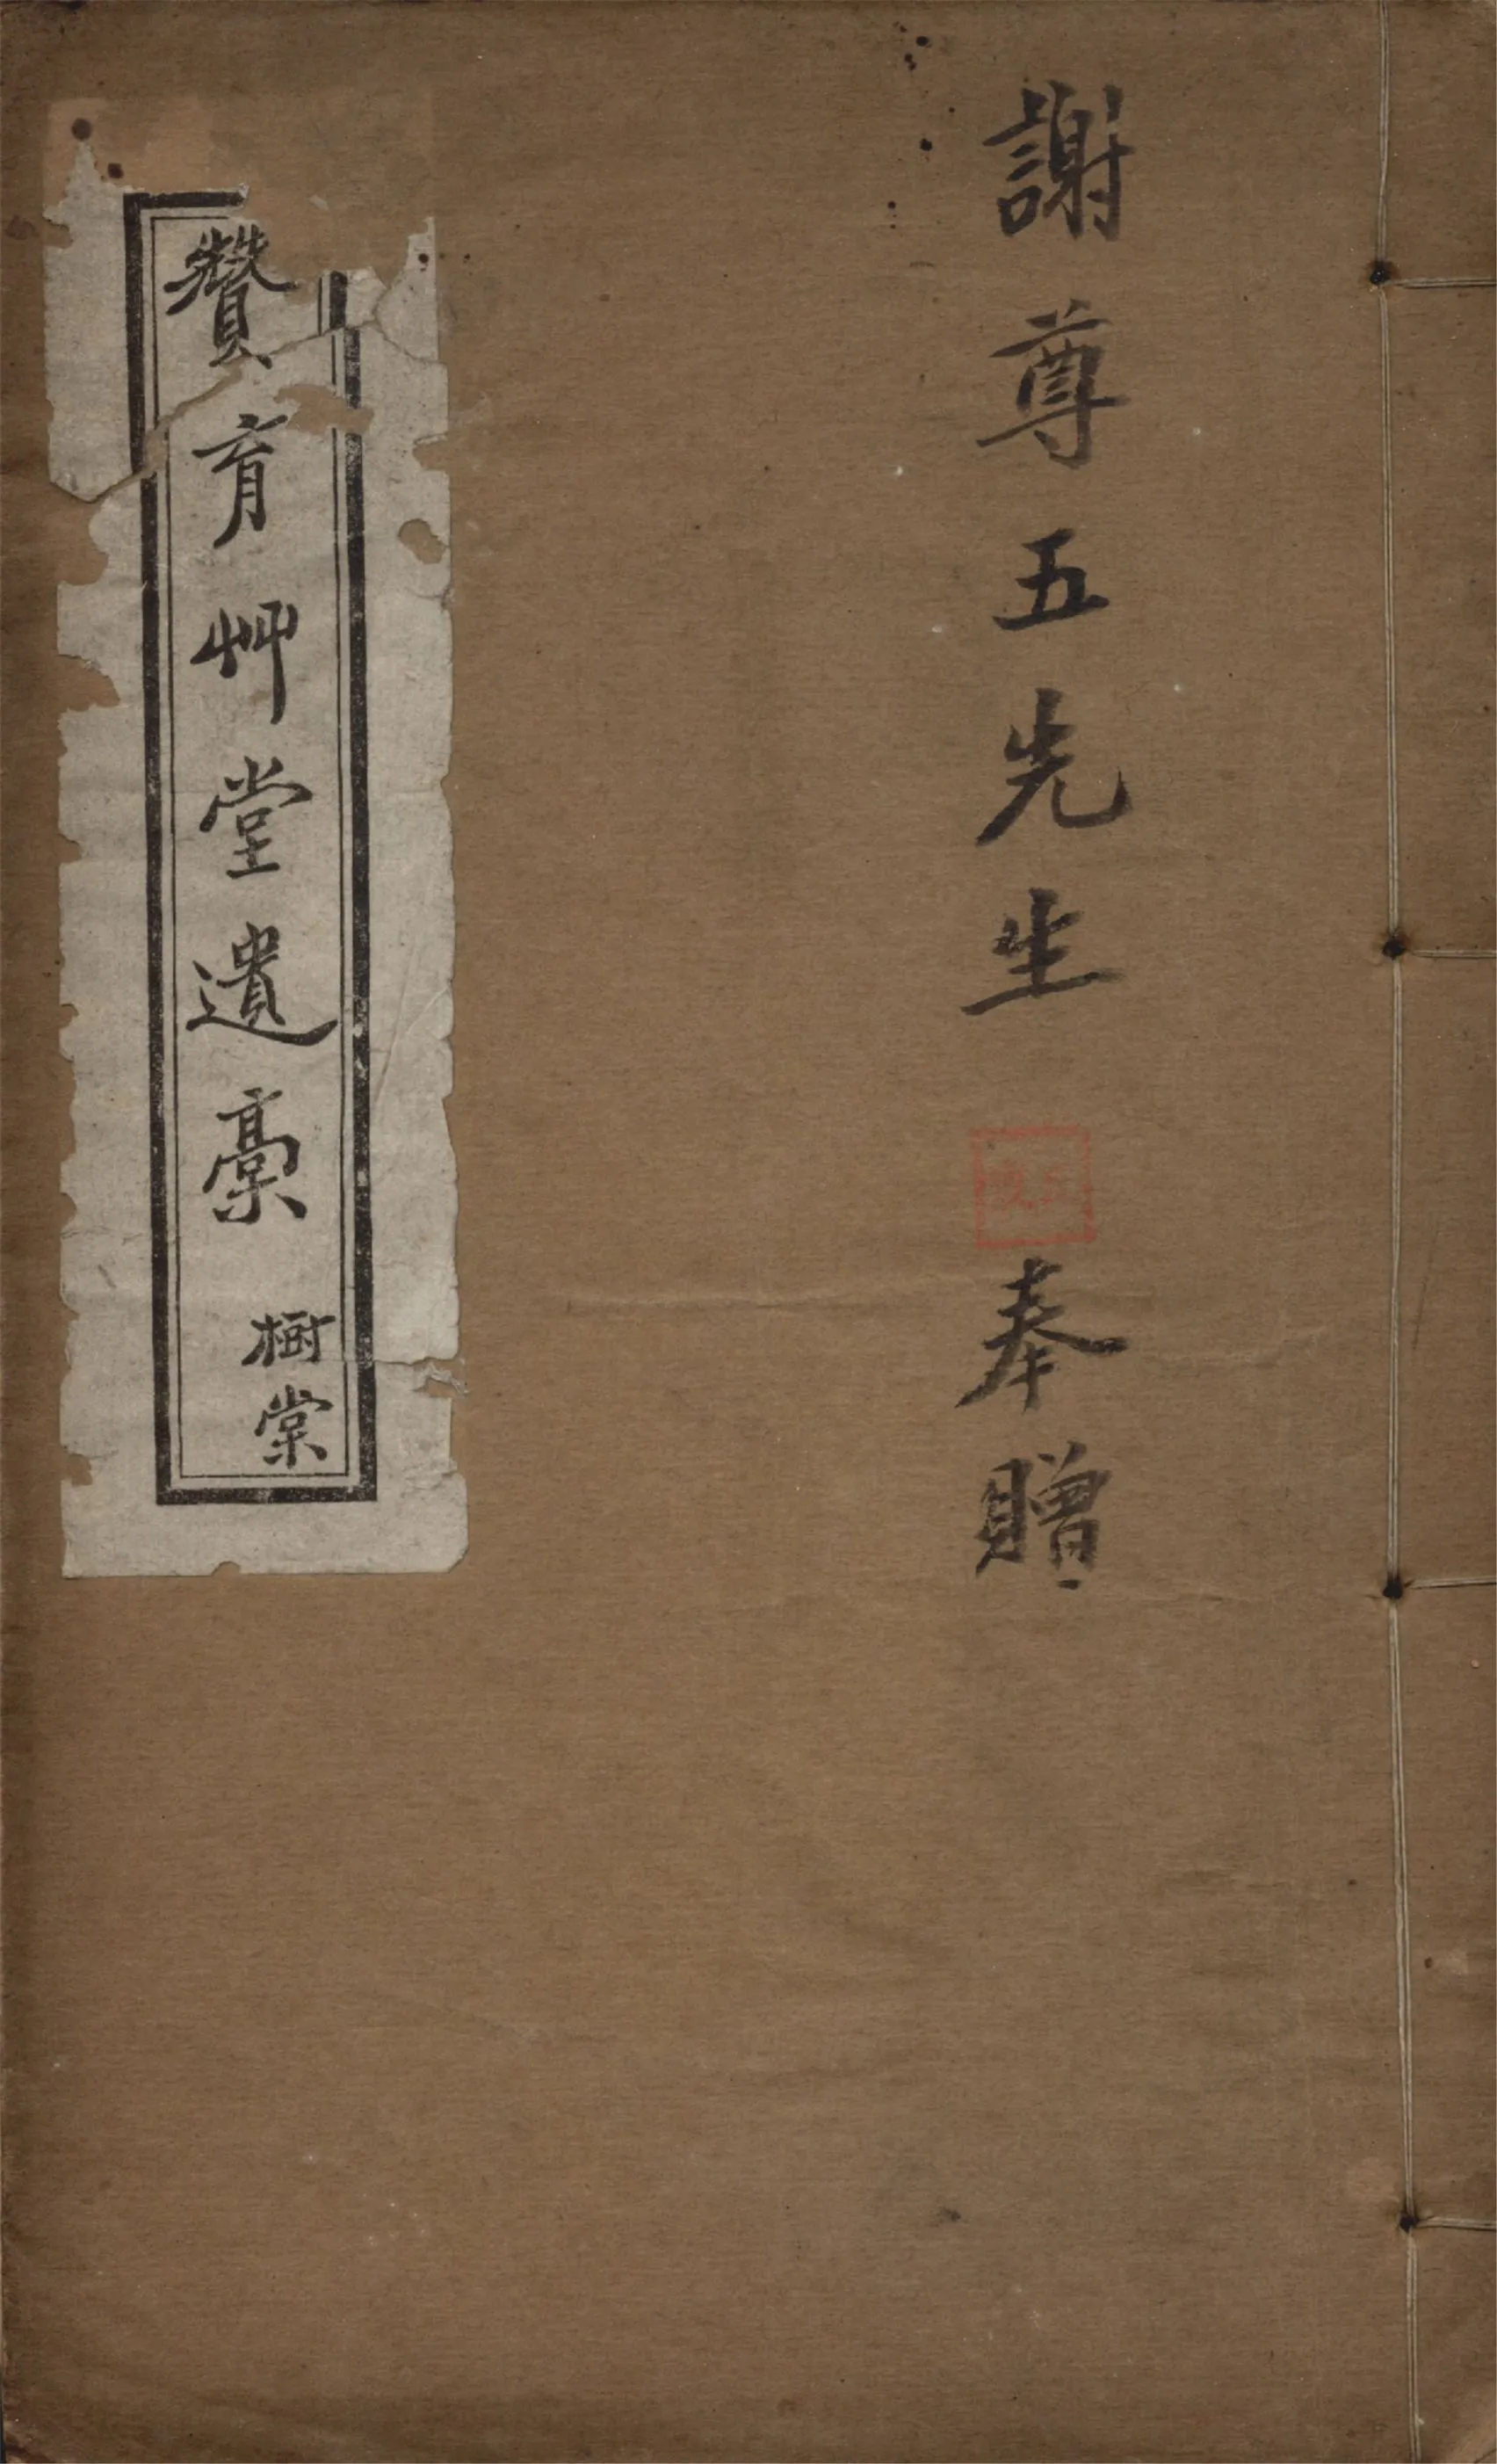 謝尊五先生奉贈
贊育艸堂遺稾
樹棠